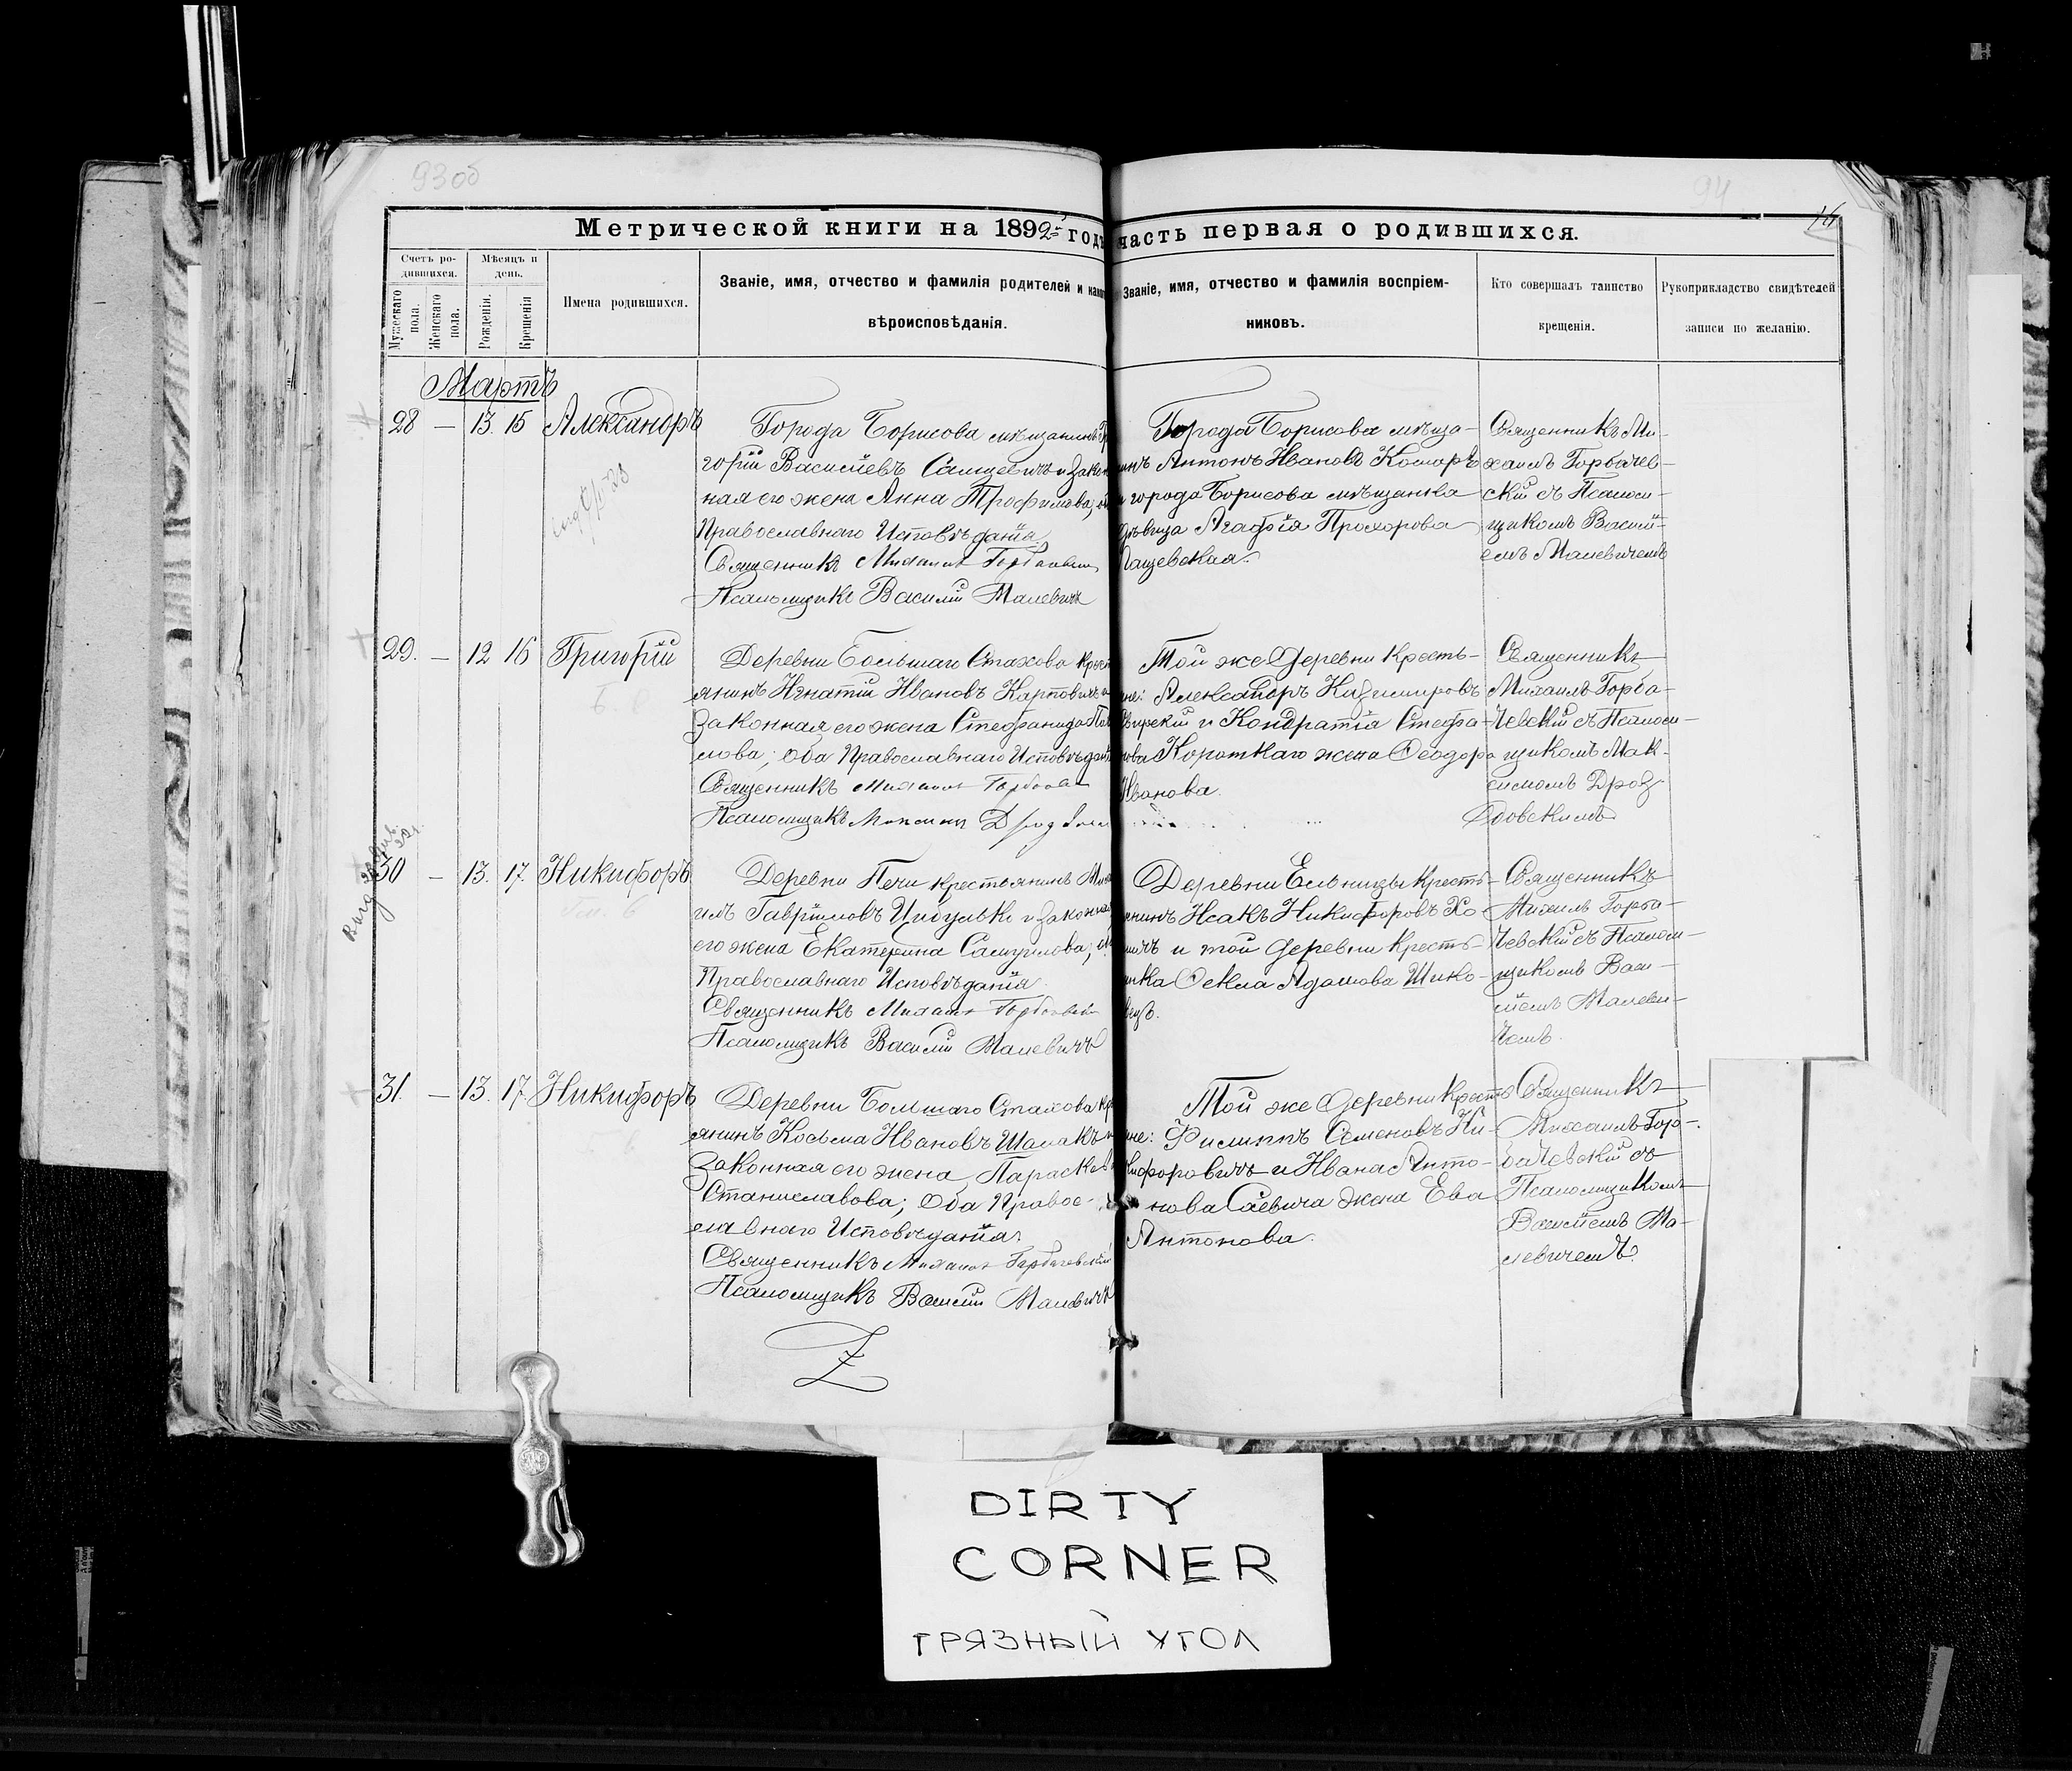 93об
94
16
Метрической книги на 1892й годъ часть первая о родившихся.
Счетъ родившихся.
Мѣсяцъ и день.
Мужескаго пола.
Женскаго пола.
Рожденія.
Крещенія
Имена родившихся.
Званіе, имя, отчество и фамилія родителей и
вѣроисповѣданія.
Званіе, имя, отчество и фамилія воспріем-
никовъ.
Кто совершалъ таинство
крещенія.
Рукоприкладство свидѣтелей
записи по желанію.
Мартъ
28 — 13. 15 Александръ
Города Борисова мѣщанинъ Гр
горій Васильевъ и закон
ная его жена Анна Трофимова;
Православнаго Исповѣданія.
Священникъ Михаилъ Горбачевскій
Псаломщикъ Василій Малевичъ
Города Борисова мѣща-
инъ Антонъ Ивановъ Комаръ
и города Борисова мѣщанка
дѣвица Агафія Прохорова
Пащевская.
Священникъ Ми-
хаилъ Горбачев-
скій съ Псалом-
щикомъ Васили-
емъ Малевичемъ
29. — 12 16 Григорій
Деревни Большаго Стахова крест
янинъ Игнатій Ивановъ Карповичъ и
законная его жена Стефанида
лова; оба Православнаго Исповѣдан
Священникъ Михаилъ Горбачев
Псаломщикъ Максимъ Дроздов
Той же деревни кресть-
яне: Александръ Казимировъ
и Кондратія Стефа-
нова Короткаго жена Ѳеодора
Иванова.
Священникъ
Михаилъ Горба-
чевскій съ Псалом-
щикомъ Мак-
симомъ Дроз
довскимъ
30 — 13. 17. Никифоръ
Деревни Печи крестьянинъ Миха
илъ Гавріиловъ Цибулька и законна
его жена Екатерина Самуилова;
Православнаго Исповѣданія.
Священникъ Михаилъ Горбачевскій
Псаломщикъ Василій Малевичъ
Деревни Ельницы кресть-
янинъ Исакъ Никифоровъ Хо-
мичъ и той деревни кресть-
янка Ѳекла Адамова Шико-
вецъ.
Священникъ
Михаилъ Горба-
чевскій съ Псалом-
щикомъ Васи-
ліемъ Малеви-
чемъ.
31. — 13. 17. Никифоръ
Деревни Большаго Стахова кре
янинъ Косьма Ивановъ Шамакъ и
законная его жена Параскев
Станиславова; оба Правос-
лавнаго Исповѣданія.
Священникъ Михаилъ Горбачевскій
Псаломщикъ Василій Малевичъ
Той же деревни кресть
яне: Филиппъ Семеновъ Ни-
кифоровичъ и Ивана Анто-
нова Саевича жена Ева
Антонова.
Священникъ
Михаилъ Гор-
бачевскій съ
Псаломщикомъ
Василіемъ Ма-
левичемъ.
DIRTY
CORNER
ГРЯЗНЫЙ УГОЛ